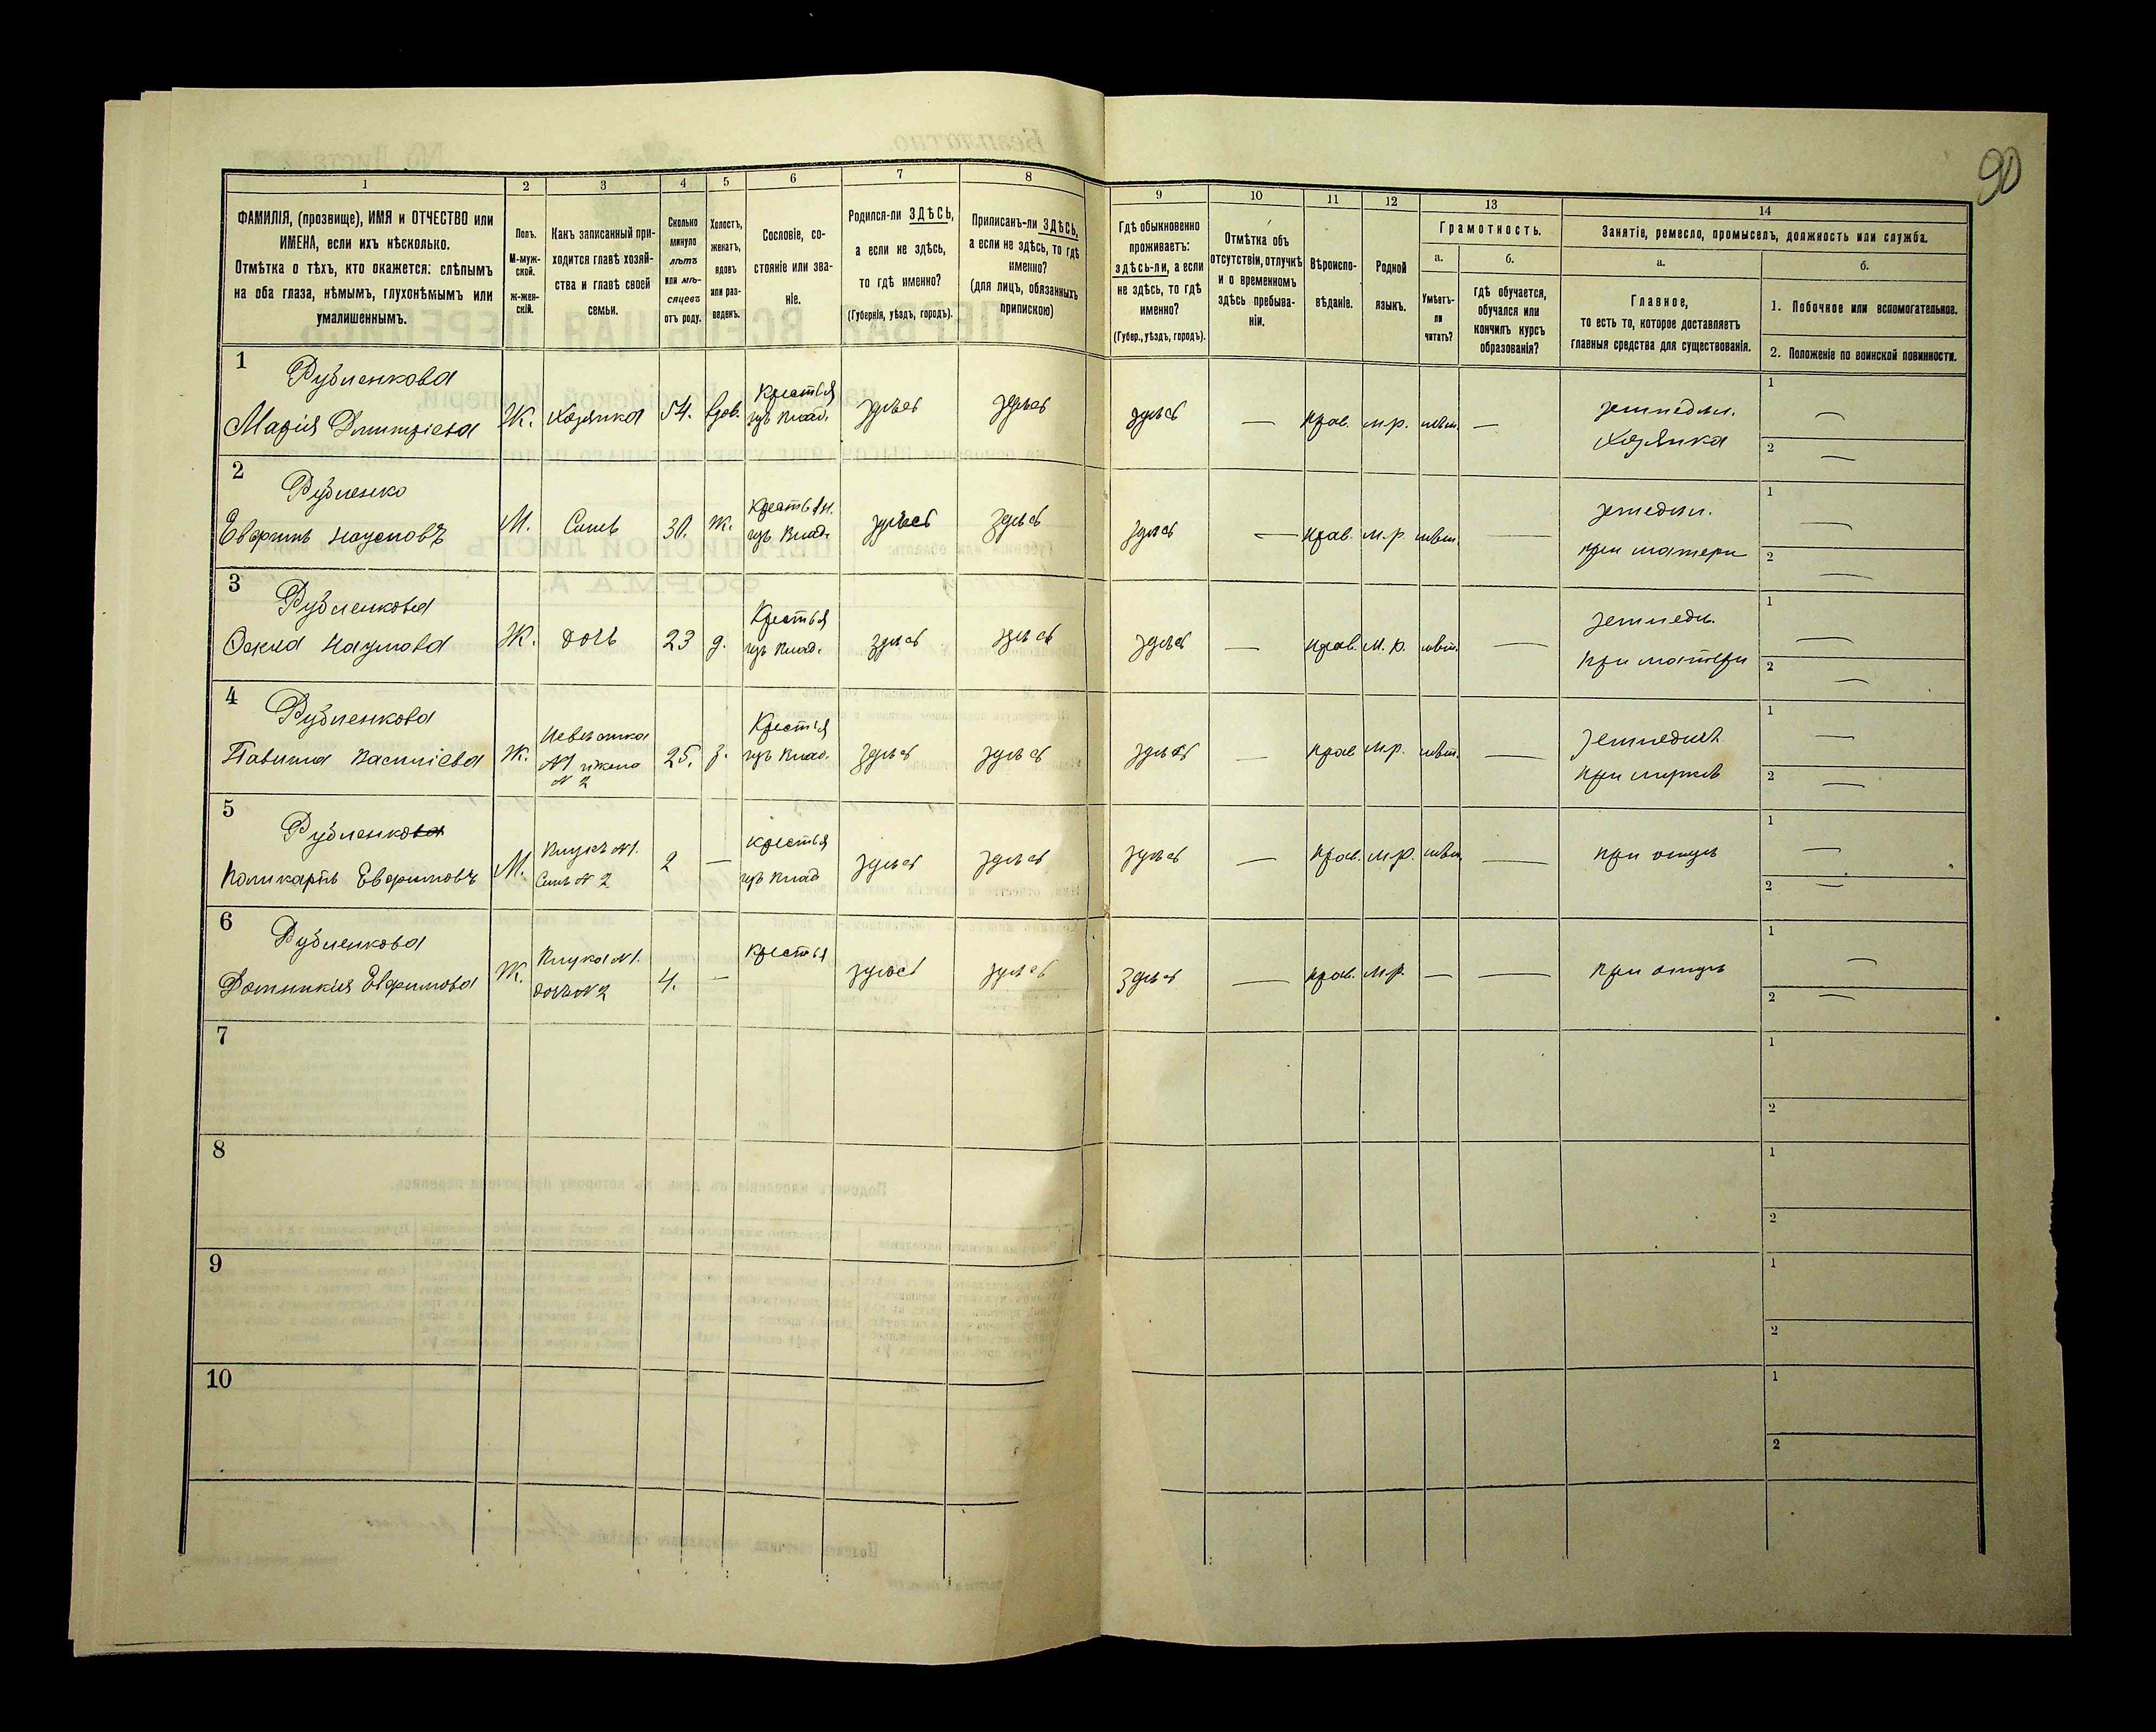 90
1
2
3
4
5
6
7
8
9
10
11
12
13
14
ФАМИЛІЯ, (прозвище), ИМЯ и ОТЧЕСТВО или
ИМЕНА, если ихъ нѣсколько.
Отмѣтка о тѣхъ, кто окажется: слѣпымъ
на оба глаза, нѣмымъ, глухонѣмымъ или
умалишеннымъ.
Полъ.
М-муж-
ской.
ж-жен-
скій.
Какъ записанный при-
ходится главѣ хозяй-
ства и главѣ своей
семьи.
Сколько
минуло
лѣтъ
или мѣ-
сяцевъ
отъ роду.
Холостъ,
женатъ,
вдовъ
или раз-
веденъ.
Сословіе, со-
стояніе или зва-
ніе.
Родился-ли ЗДѢСЬ,
а если не здѣсь,
то гдѣ именно?
(Губернія, уѣздъ, городъ).
Приписанъ-ли ЗДѢСЬ,
а если не здѣсь, то гдѣ
именно?
(для лицъ, обязанныхъ
припискою)
Гдѣ обыкновенно
проживаетъ:
здѣсь-ли, а если
не здѣсь, то гдѣ
именно?
(Губер., уѣздъ, городъ).
Отмѣтка объ
отсутствіи, отлучкѣ
и о временномъ
здѣсь пребыва-
ніи.
Вѣроиспо-
вѣданіе.
Родной
языкъ.
Грамотность.
а.
Умѣетъ-
ли
читать?
б.
гдѣ обучается,
обучался или
кончилъ курсъ
образованія?
Занятіе, ремесло, промыселъ, должность или служба.
а.
Главное,
то есть то, которое доставляетъ
главныя средства для существованія.
б.
1. Побочное или вспомогательное.
2. Положеніе по воинской повинности.
1
Рубленкова
Марія Дмитріева
Ж.
Хозяйка
54.
вдов.
Крестья
изъ влад.
здѣсь
здѣсь
здѣсь
—
прав.
м.р.
нѣт.
—
земледѣл.
хозяйка
1 —
2 —
2
Рубленко
Евфимъ Наумовъ
М.
Сынъ
30.
ж.
Крестьян.
изъ влад.
здѣсь
здѣсь
здѣсь
—
прав.
м.р
нѣт.
—
земледѣл.
при матери
1 —
2 —
3
Рубленкова
Фекла Наумова
Ж.
дочь
23
д.
Крестья
изъ влад.
здѣсь
здѣсь
здѣсь
—
прав.
м.р.
нѣт.
—
земледѣл.
при матери
1 —
2 —
4
Рубленкова
Павлина Василіева
Ж.
Невѣстка
№1 жена
№2
25.
з.
Крестья
изъ влад.
здѣсь
здѣсь
здѣсь
—
прав
м.р.
нѣт.
—
земледѣл.
при мужѣ
1 —
2 —
5
Рубленкова
Поликарпъ Евфимовъ
М.
Внукъ №1.
Сынъ №2
2
—
крестья
изъ влад
здѣсь
здѣсь
здѣсь
—
прав.
м.р.
нѣт.
—
при отцѣ
1 —
2 —
6
Рубленкова
Домникія Евфимова
Ж.
Внука №1.
дочь №2
4.
—
крестья
здѣсь
здѣсь
здѣсь
—
прав.
м.р.
—
—
при отцѣ
1 —
2 —
7
1
2
8
1
2
9
1
2
10
1
2